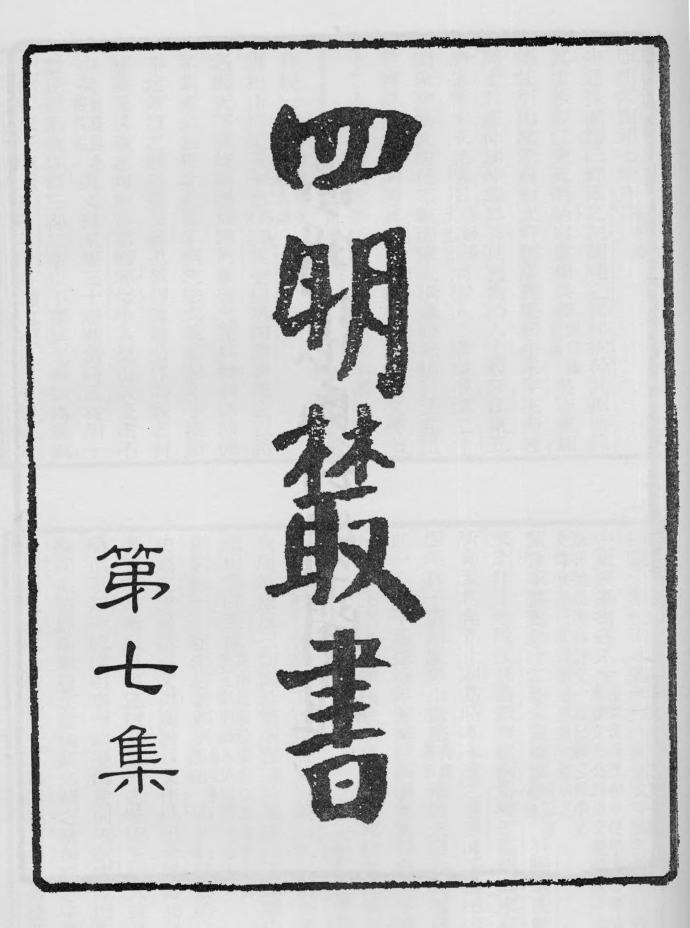 四明叢書
第七集